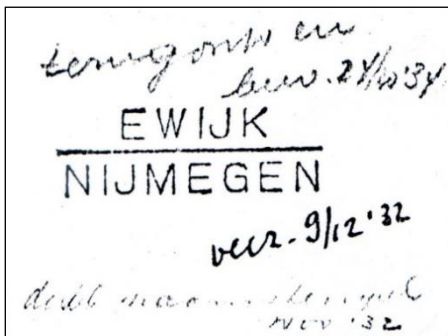 terugontv en
bew. 24/10 '34
EWIJK
NIJMEGEN
verz. 9/12 '32
naamstempel
nov '32